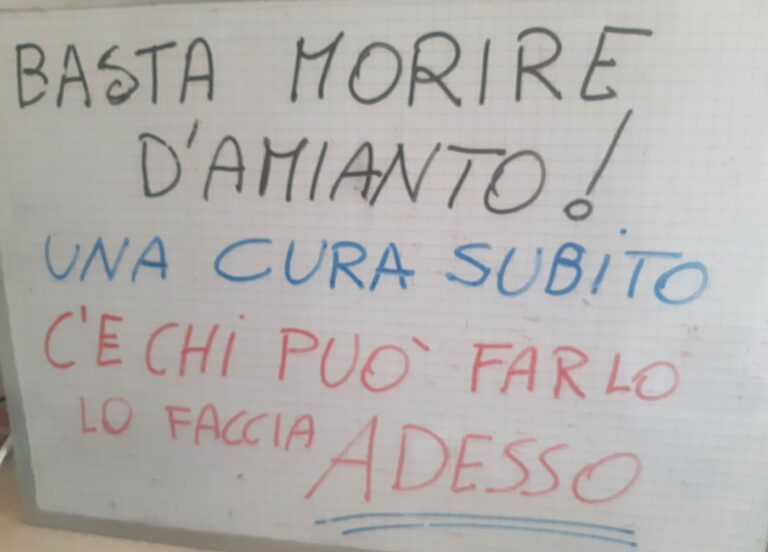 BASTA MORIRE
D'AMIANTO!
UNA CURA SUBITO
C'E CHI PUO' FARLO
LO FACCIA ADESSO